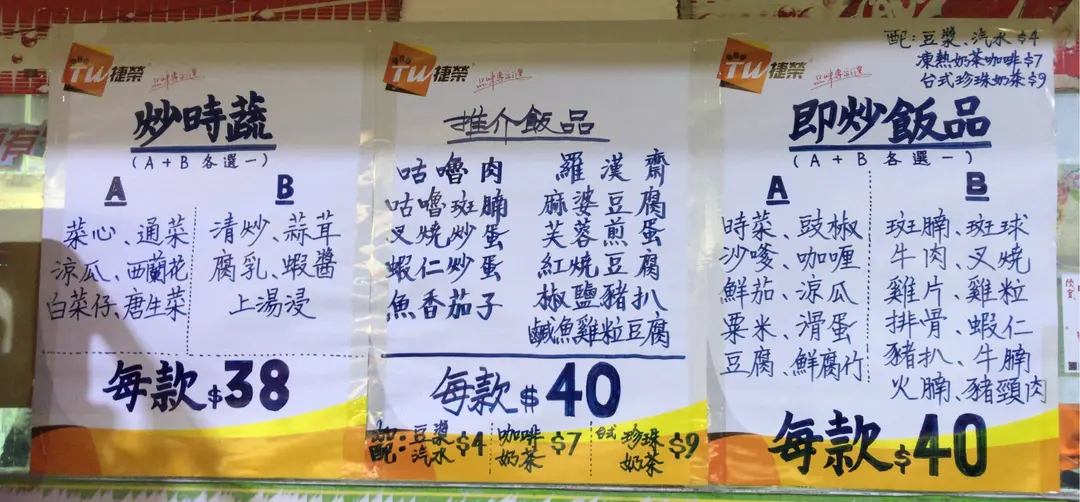 TW捷榮
炒時蔬
(A+B各選一)
A
B
菜心、通菜
涼瓜、西蘭花
白菜仔、唐生菜
清炒、蒜茸
腐乳、蝦醬
上湯浸
每款$38
TW捷榮
推介飯品
咕嚕肉
咕嚕斑腩
叉燒炒蛋
蝦仁炒蛋
魚香茄子
羅漢齋
麻婆豆腐
芙蓉煎蛋
紅燒豆腐
椒鹽豬扒
鹹魚雞粒豆腐
每款$40
配:豆漿汽水$4
咖啡奶茶$7
台式珍珠奶茶$9
TW捷榮
配:豆漿、汽水$4
凍熱奶茶咖啡$7
台式珍珠奶茶$9
即炒飯品
(A+B各選一)
A
B
時菜、豉椒
沙嗲、咖喱
鮮茄、涼瓜
粟米、滑蛋
豆腐、鮮腐竹
斑腩、斑球
牛肉、叉燒
雞片、雞粒
排骨、蝦仁
豬扒、牛腩
火腩、豬頸肉
每款$40